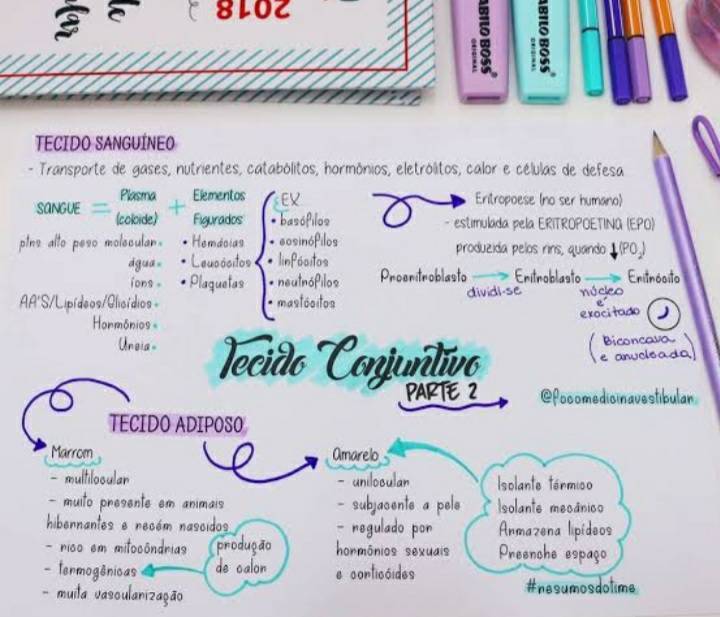 2018
STABILO BOSS
ORIGINAL
STABILO BOSS
ORIGINAL
TECIDO SANGUÍNEO
- Transporte de gases, nutrientes, catabólitos, hormônios, eletrólitos, calor e células de defesa
SANGUE = Plasma (coloide) + Elementos Figurados
ptns alto peso molecular
água
íons
AA'S/Lipídeos/Glicídios
Hormônios
Ureia
• Hemácias
• Leucócitos
• Plaquetas
EX
• basófilos
• eosinófilos
• linfócitos
• neutrófilos
• mastócitos
Eritropoese (no ser humano)
- estimulada pela ERITROPOETINA (EPO)
produzida pelos rins, quando ↓(PO₂)
Proeritroblasto → Eritroblasto → Eritrócito
dividi-se
núcleo
é
exocitado
(Biconcava
e anucleada)
Tecido Conjuntivo
PARTE 2
@focomedicinavestibular
TECIDO ADIPOSO
Marrom
- multilocular
- muito presente em animais
hibernantes e recém nascidos
- rico em mitocôndrias
- termogênicas
- muita vascularização
produção
de calor
Amarelo
- unilocular
- subjacente a pele
- regulado por
hormônios sexuais
e corticóides
Isolante térmico
Isolante mecânico
Armazena lipídeos
Preenche espaço
#resumosdotime